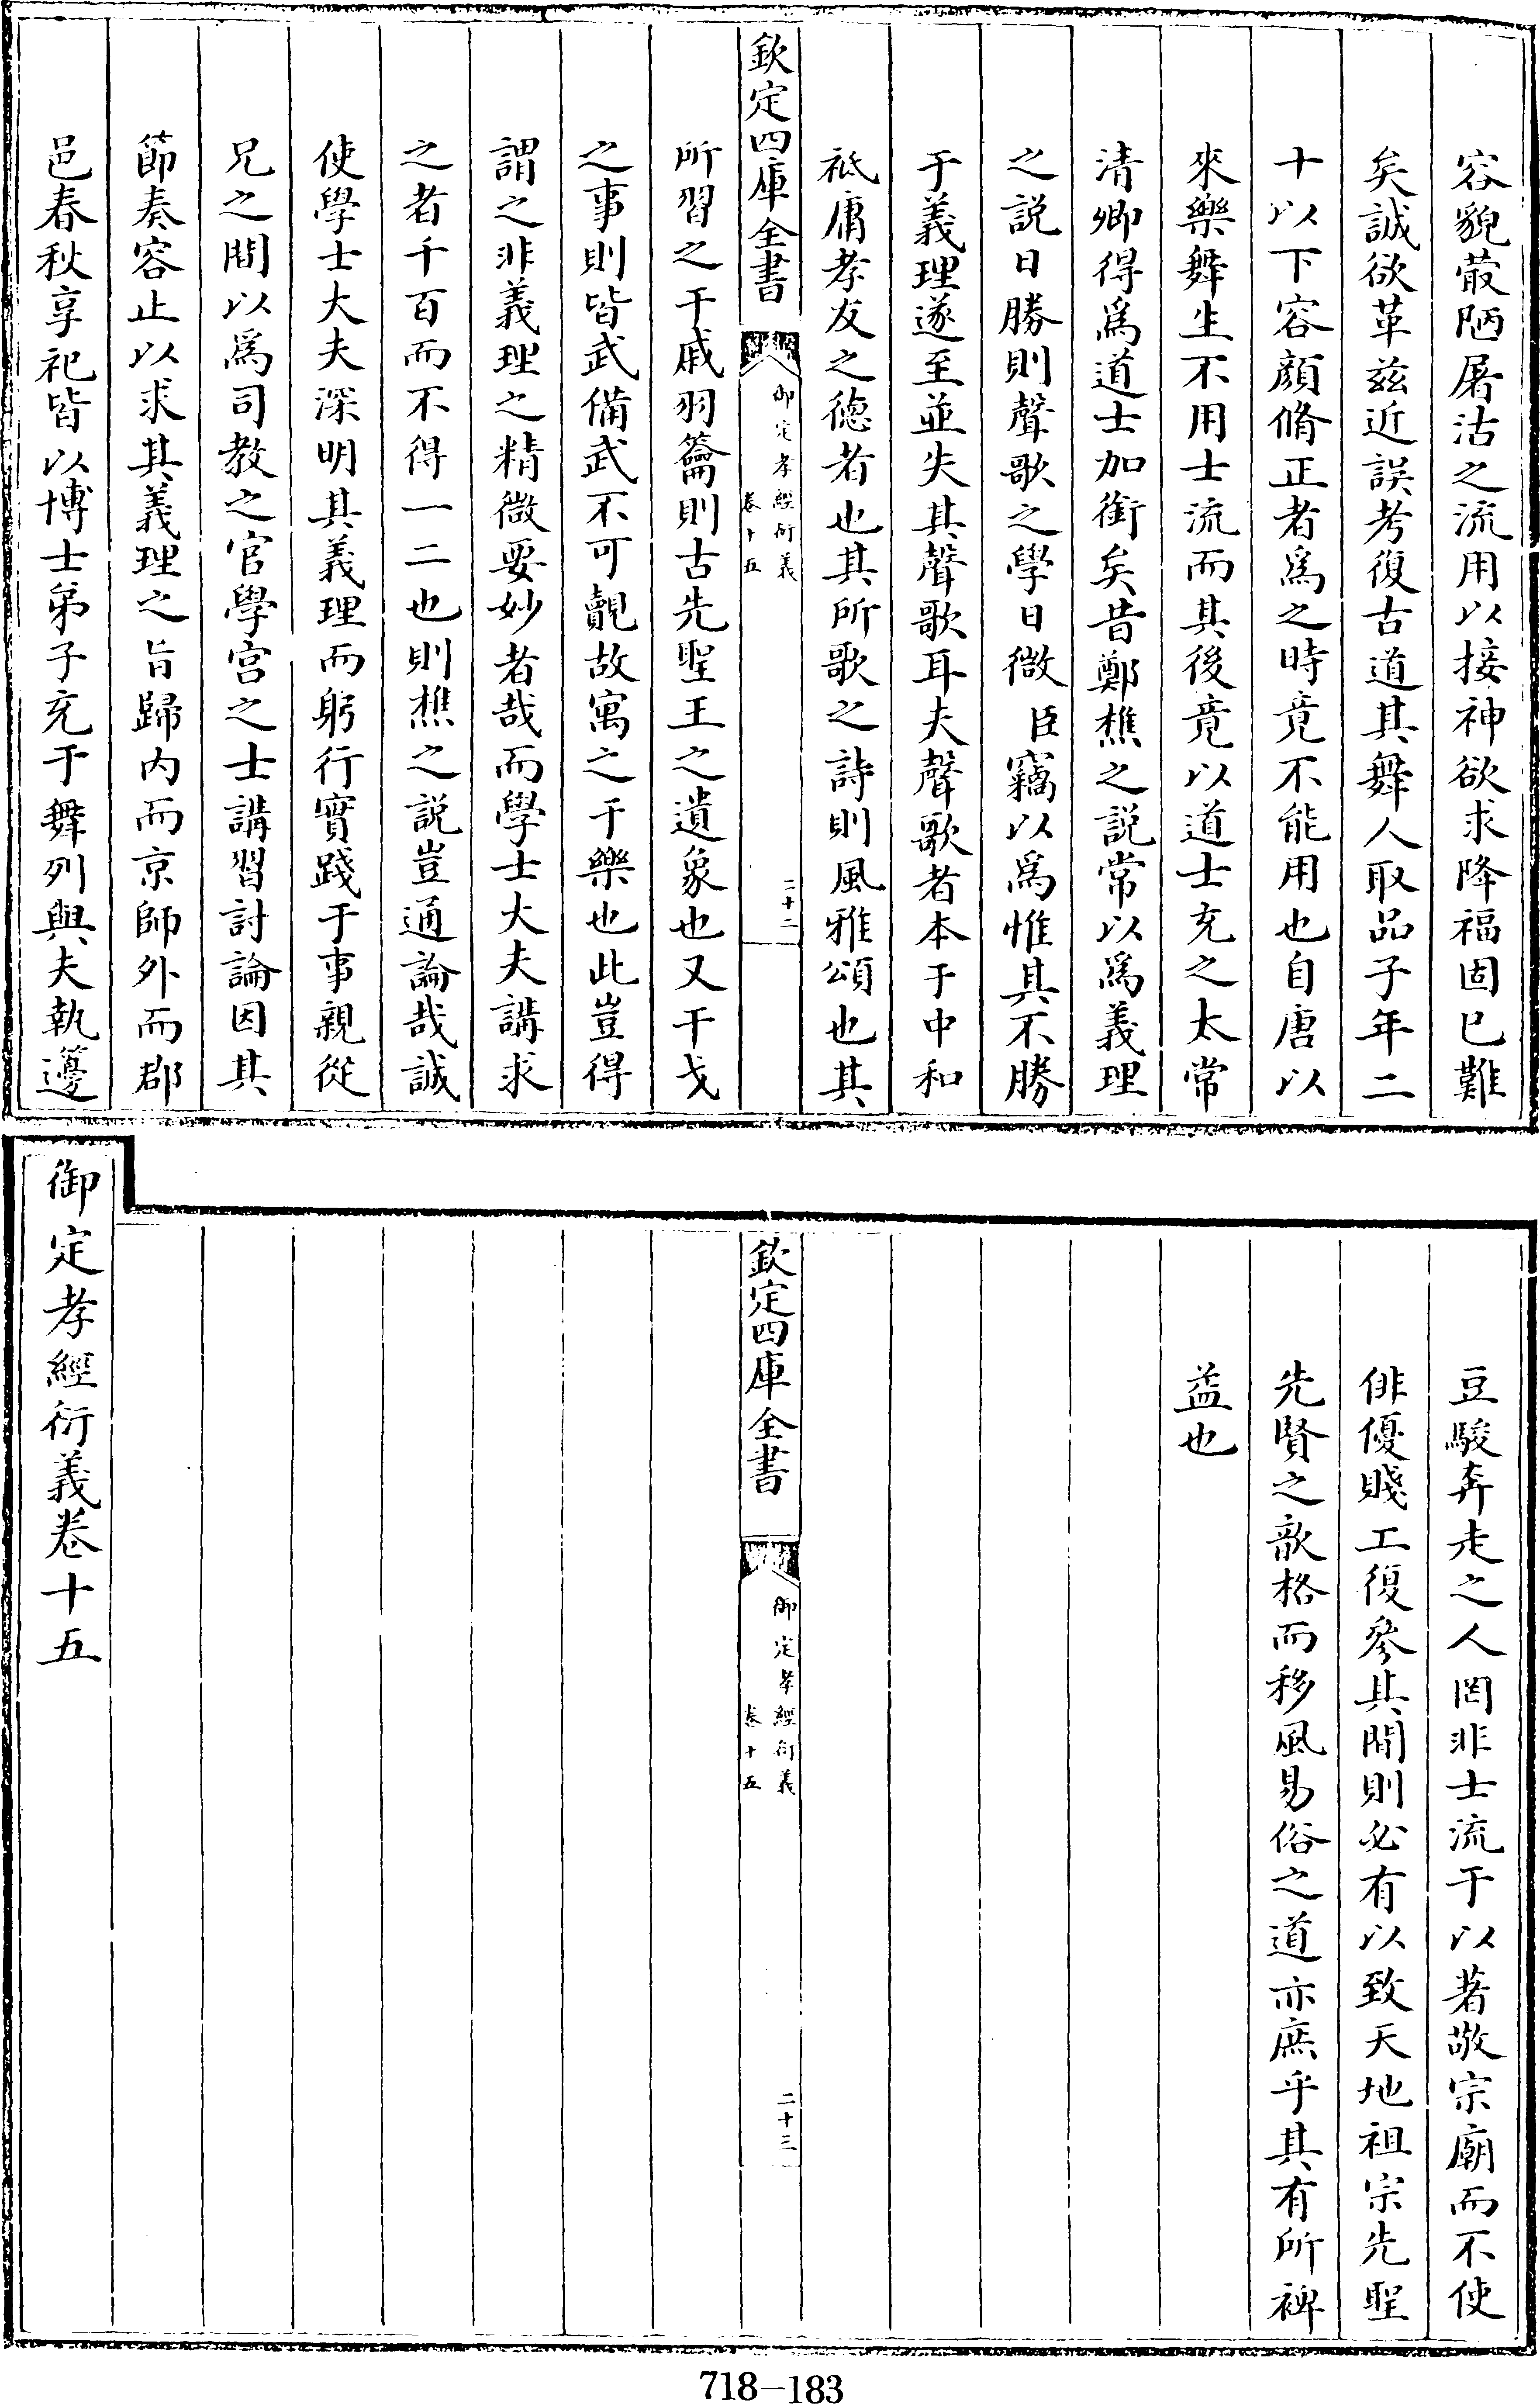 容貌蕞陋屠沽之流用以接神欲求降福固已難
矣誠欲革兹近誤考復古道其舞人取品子年二
十以下容顔脩正者爲之時竟不能用也自唐以
來樂舞生不用士流而其後竟以道士充之太常
清卿得爲道士加銜矣昔鄭樵之説常以爲義理
之説日勝則聲歌之學日微臣竊以爲惟其不勝
于義理遂至並失其聲歌耳夫聲歌者本于中和
祗庸孝友之德者也其所歌之詩則風雅頌也其
欽定四庫全書
御定孝經衍義
卷十五
二十二
所習之干戚羽籥則古先聖王之遺象也又干戈
之事則皆武備武不可覿故寓之干樂也此豈得
謂之非義理之精微要妙者哉而學士大夫講求
之者千百而不得一二也則樵之説豈通論哉誠
使學士大夫深明其義理而躬行實踐于事親從
兄之間以爲司教之官學宫之士講習討論因其
節奏容止以求其義理之旨歸内而京師外而郡
邑春秋享祀皆以博士弟子充于舞列與夫執籩
豆駿奔走之人罔非士流于以著敬宗廟而不使
俳優賤工復參其間則必有以致天地祖宗先聖
先賢之歆格而移風易俗之道亦庶乎其有所裨
益也
欽定四庫全書
御定孝經衍義
卷十五
二十三
御定孝經衍義卷十五
718-183